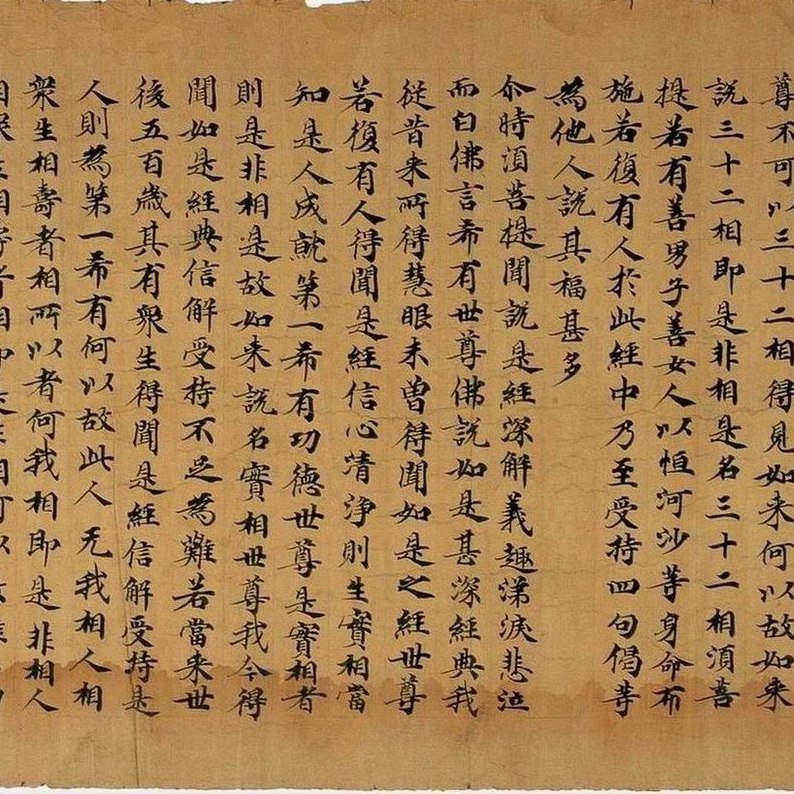 尊不可以三十二相得見如来何以故如来
説三十二相即是非相是名三十二相湏菩
提若有善男子善女人以恒河沙等身命布
施若復有人於此經中乃至受持四句偈等
為他人説其福甚多
尒時湏菩提聞説是經深解義趣涕淚悲泣
而白佛言希有世尊佛説如是甚深經典我
從昔来所得慧眼未曽得聞如是之經世尊
若復有人得聞是經信心清浄則生實相當
知是人成就第一希有功德世尊是實相者
則是非相是故如来説名實相世尊我今得
聞如是經典信解受持不足為難若當来世
後五百歳其有衆生得聞是經信解受持是
人則為第一希有何以故此人无我相人相
衆生相壽者相所以者何我相即是非相人
相衆生相壽者相即是非相何以故